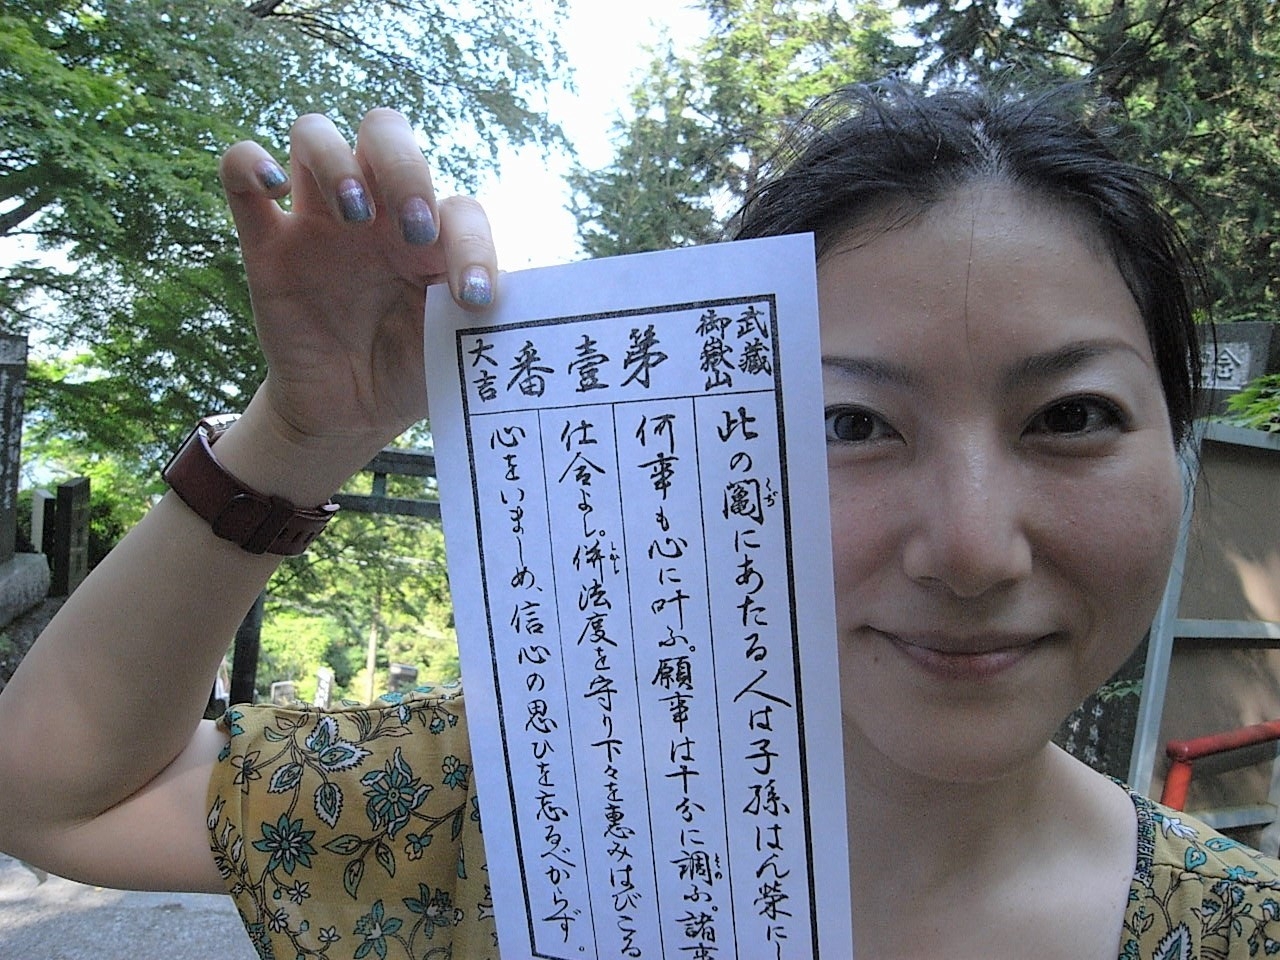 武蔵
御嶽山
第壹番
大吉
此の鬮にあたる人は子孫はん榮にし
くじ
何事も心に叶ふ。願事は十分に調ふ。諸事
との
仕合よし。併法度を守り下々を惠みはびこる
しかし
心をいましめ、信心の思ひを忘るべからず。